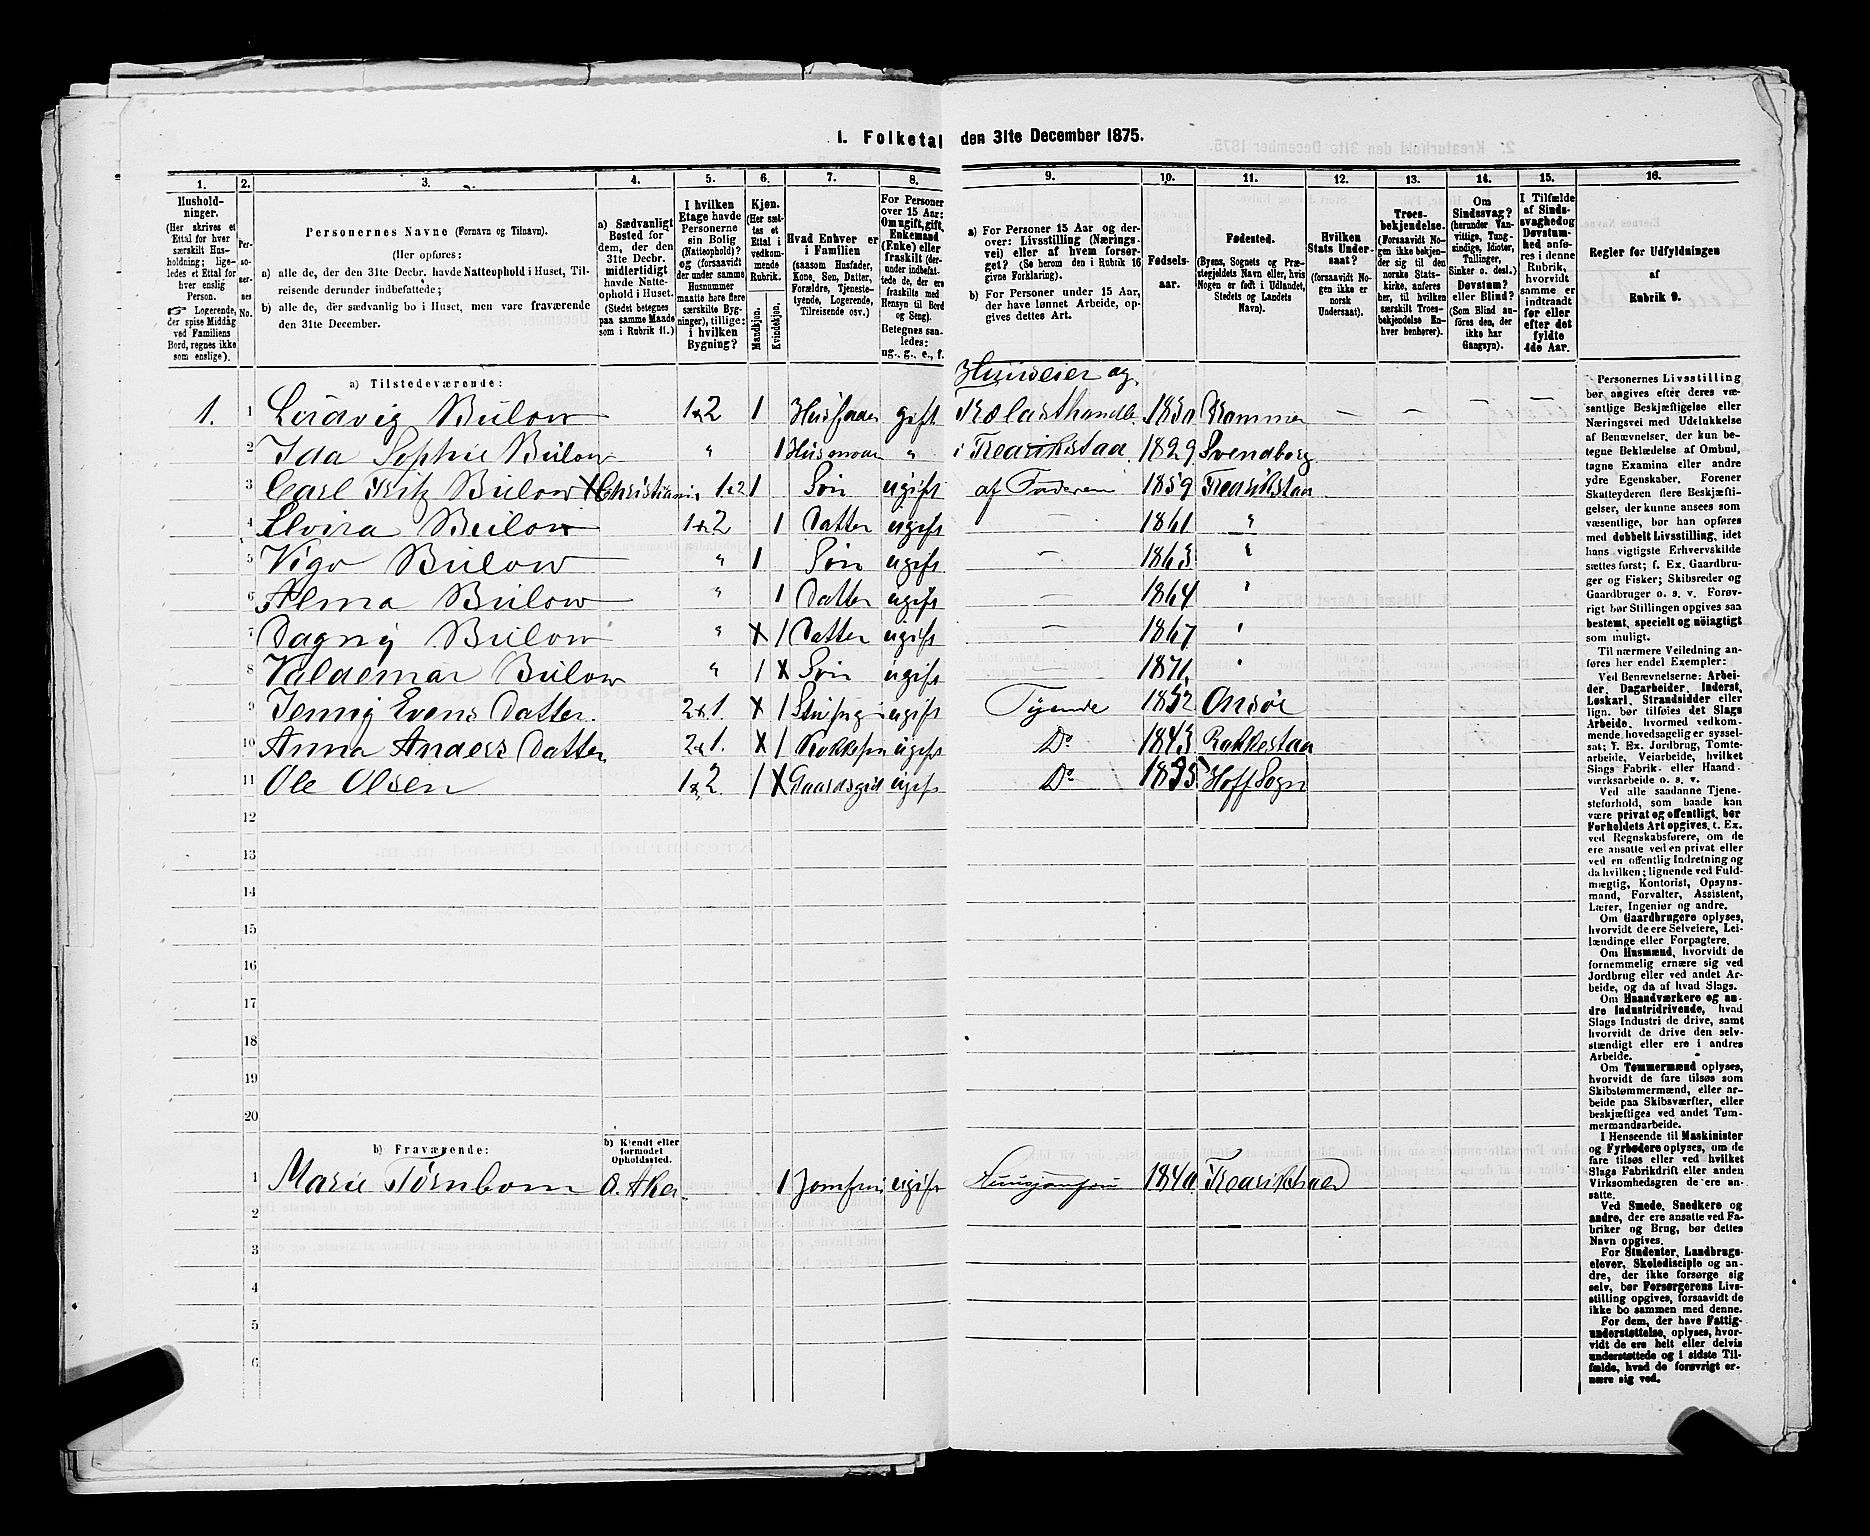 1. Folketal den 31te December 1875.
1. 2. 3. 4. 5. 6. 7. 8. 9. 10. 11. 12. 13. 14. 15. 16.
Hushold-
ninger.
(Her skrives et
Ettal for hver
særskilt Hus-
holdning; lige-
ledes et Ettal for
hver enslig
Person.
Logerende,
der spise Middag
ved Familiens
Bord, regnes ikke
som enslige).
Per-
so-
ner-
nes
No.
Personernes Navne (Fornavn og Tilnavn).
(Her opføres:
a) alle de, der den 31te Decbr. havde Natteophold i Huset, Til-
reisende derunder indbefattede;
b) alle de, der sædvanlig bo i Huset, men vare fraværende
den 31te December.
a) Sædvanligt
Bosted for
dem, der den
31te Decbr.
midlertidigt
havde Natte-
ophold i Huset.
(Stedet betegnes
paa samme Maade
som i Rubrik 11.)
I hvilken
Etage havde
Personerne
sin Bolig
(Natteophold)?
og (forsaavidt
der under samme
Husnummer
maatte høre flere
særskilte Byg-
ninger), tillige:
i hvilken
Bygning?
Kjøn.
(Her sæt-
tes et
Ettal i
vedkom-
mende
Rubrik.
Mandkjøn.
Kvindekjøn.
Hvad Enhver er
i Familien
(saasom Husfader,
Kone, Søn, Datter,
Forældre, Tjeneste-
tyende, Logerende,
Tilreisende osv.)
For Personer
over 15 Aar:
Om ugift, gift,
Enkemand
(Enke) eller
fraskilt (der-
under indbefat-
tede de, der ere
fraskilte med
Hensyn til Bord
og Seng).
Betegnes saa-
ledes:
ug., g., e., f.
a) For Personer 15 Aar og der-
over: Livsstilling (Nærings-
vei) eller af hvem forsør-
get? (Se herom den i Rubrik 16
givne Forklaring).
b) For Personer under 15 Aar,
der have lønnet Arbeide, op-
gives dettes Art.
Fødsels-
aar.
Fødested.
(Byens, Sognets og Præ-
stegjeldets Navn eller, hvis
Nogen er født i Udlandet,
Stedets og Landets
Navn).
Hvilken
Stats Under-
saat?
(forsaavidt No-
gen ikke er
norsk
Undersaat).
Troes-
bekjendelse.
(Forsaavidt No-
gen ikke bekjen-
der sig til den
norske Stats-
kirke, anføres
her, til hvilken
særskilt Troes-
bekjendelse En-
hver henhører).
Om
Sindssvag?
(herunder Van-
vittige, Tung-
sindige, Idioter,
Tullinger,
Sinker o. desl.)
Døvstum?
eller Blind?
(Som Blind an-
føres den, der
ikke har
Gangsyn).
I Tilfælde
af Sinds-
svaghed og
Døvstum-
hed anfø-
res i denne
Rubrik,
hvorvidt
samme er
indtraadt
før eller
efter det
fyldte
4de Aar.
Regler for Udfyldningen
af
Rubrik 9.
a) Tilstedeværende:
Huuseier og
1. 1 Ludvig Bülow 1x2 1 Husfader gift Trælasthandl. 1830 Drammen
2 Ida Sophie Bülow " 1 Husmoder " i Fredrikstad 1829 Svendborg
3 Carl Fritz Bülow X Christiania 1x2 1 Søn ugift af Faderen 1859 Fredrikstad
4 Elvira Bülow 1x2 1 Datter ugift — 1861 "
5 Vigo Bülow " 1 Søn ugift — 1863 "
6 Alma Bülow " 1 Datter ugift — 1864 "
7 Dagny Bülow " X 1 Datter ugift — 1867 "
8 Valdemar Bülow " 1 X Søn ugift — 1871 "
9 Jenny Evens Datter 2x1. X 1 ugift Tyende 1852 Onsøe
10 Anna Anders Datter 2x1. X 1 Kokkepi ugift Do 1843 Rakkestad
11 Ole Olsen 1x2 1 X Gaardsgut ugift Do 1835 Hoff Sogn
12
13
14
15
16
17
18
19
20
b) Fraværende:
b) Kjendt eller
formodet
Opholdssted.
1 Marie Tørnbom Ø. Aker. 1 Jomfru ugift Huusjomfru 1840 Fredrikshald
2
3
4
5
6
Personernes Livsstilling
bør angives efter deres væ-
sentlige Beskjæftigelse eller
Næringsvei med Udelukkelse
af Benævnelser, der kun be-
tegne Beklædelse af Ombud,
tagne Examina eller andre
ydre Egenskaber. Forener
Skatteyderen flere Beskjæfti-
gelser, der kunne ansees som
væsentlige, bør han opføres
med dobbelt Livsstilling, idet
hans vigtigste Erhvervskilde
sættes først; f. Ex. Gaardbru-
ger og Fisker; Skibsreder og
Gaardbruger o. s. v. Forøv-
rigt bør Stillingen opgives saa
bestemt, specielt og nøiagtigt
som muligt.
Til nærmere Veiledning an-
føres her endel Exempler:
Ved Benævnelserne: Arbei-
der, Dagarbeider, Inderst,
Løskarl, Strandsidder eller
lign. bør tilføies det Slags
Arbeide, hvormed vedkom-
mende hovedsagelig er syssel-
sat; f. Ex. Jordbrug, Tomte-
arbeide, Veiarbeide, hvilket
Slags Fabrik- eller Haand-
værksarbeide o. s. v.
Ved alle saadanne Tjene-
steforhold, som baade kan
være privat og offentligt, bør
Forholdets Art opgives, t. Ex.
ved Regnskabsførere, om de
ere ansatte ved en privat eller
ved en offentlig Indretning og
da hvilken; lignende ved Fuld-
mægtig, Kontorist, Opsyns-
mand, Forvalter, Assistent,
Lærer, Ingeniør og andre.
Om Gaardbrugere oplyses,
hvorvidt de ere Selveiere, Lei-
lændinge eller Forpagtere.
Om Husmænd, hvorvidt de
fornemmelig ernære sig ved
Jordbrug eller ved andet Ar-
beide, og da af hvad Slags.
Om Haandværkere og an-
dre Industridrivende, hvad
Slags Industri de drive, samt
hvorvidt de drive den selv-
stændigt eller ere i andres
Arbeide.
Om Tømmermænd oplyses,
hvorvidt de fare tilsøs som
Skibstømmermænd, eller ar-
beide paa Skibsværfter, eller
beskjæftiges ved andet Tøm-
mermandsarbeide.
I Henseende til Maskinister
og Fyrbødere oplyses, om de
fare tilsøs eller ved hvilket
Slags Fabrikdrift eller anden
Virksomhedsgren de ere an-
satte.
Ved Smede, Snedkere og
andre, der ere ansatte ved Fa-
briker og Brug, bør dettes
Navn opgives.
For Studenter, Landbrugs-
elever, Skoledisciple og an-
dre, der ikke forsørge sig
selv, bør Forsørgerens Livs-
stilling opgives, forsaavidt de
ikke bo sammen med denne.
For dem, der have Fattig-
understøttelse, oplyses, hvor-
vidt de ere helt eller delvis
understøttede og i sidste Til-
fælde, hvad de forøvrigt er-
nære sig ved.